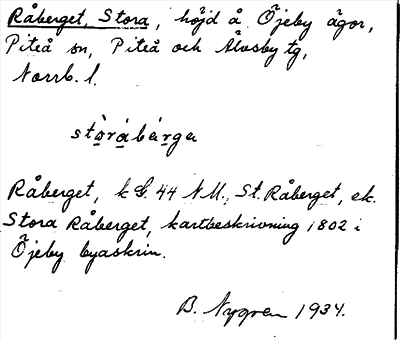 Råberget, Stora, höjd å Öjeby ägor,
Piteå sn, Piteå och Älvsby tg,
Norrb. l.
stòrabǻrga
Råberget, k G. 44 N.M., St. Råberget, ek.
Stora Råberget, kartbeskrivning 1802 i
Öjeby byaskrin.
B. Nygren 1934.